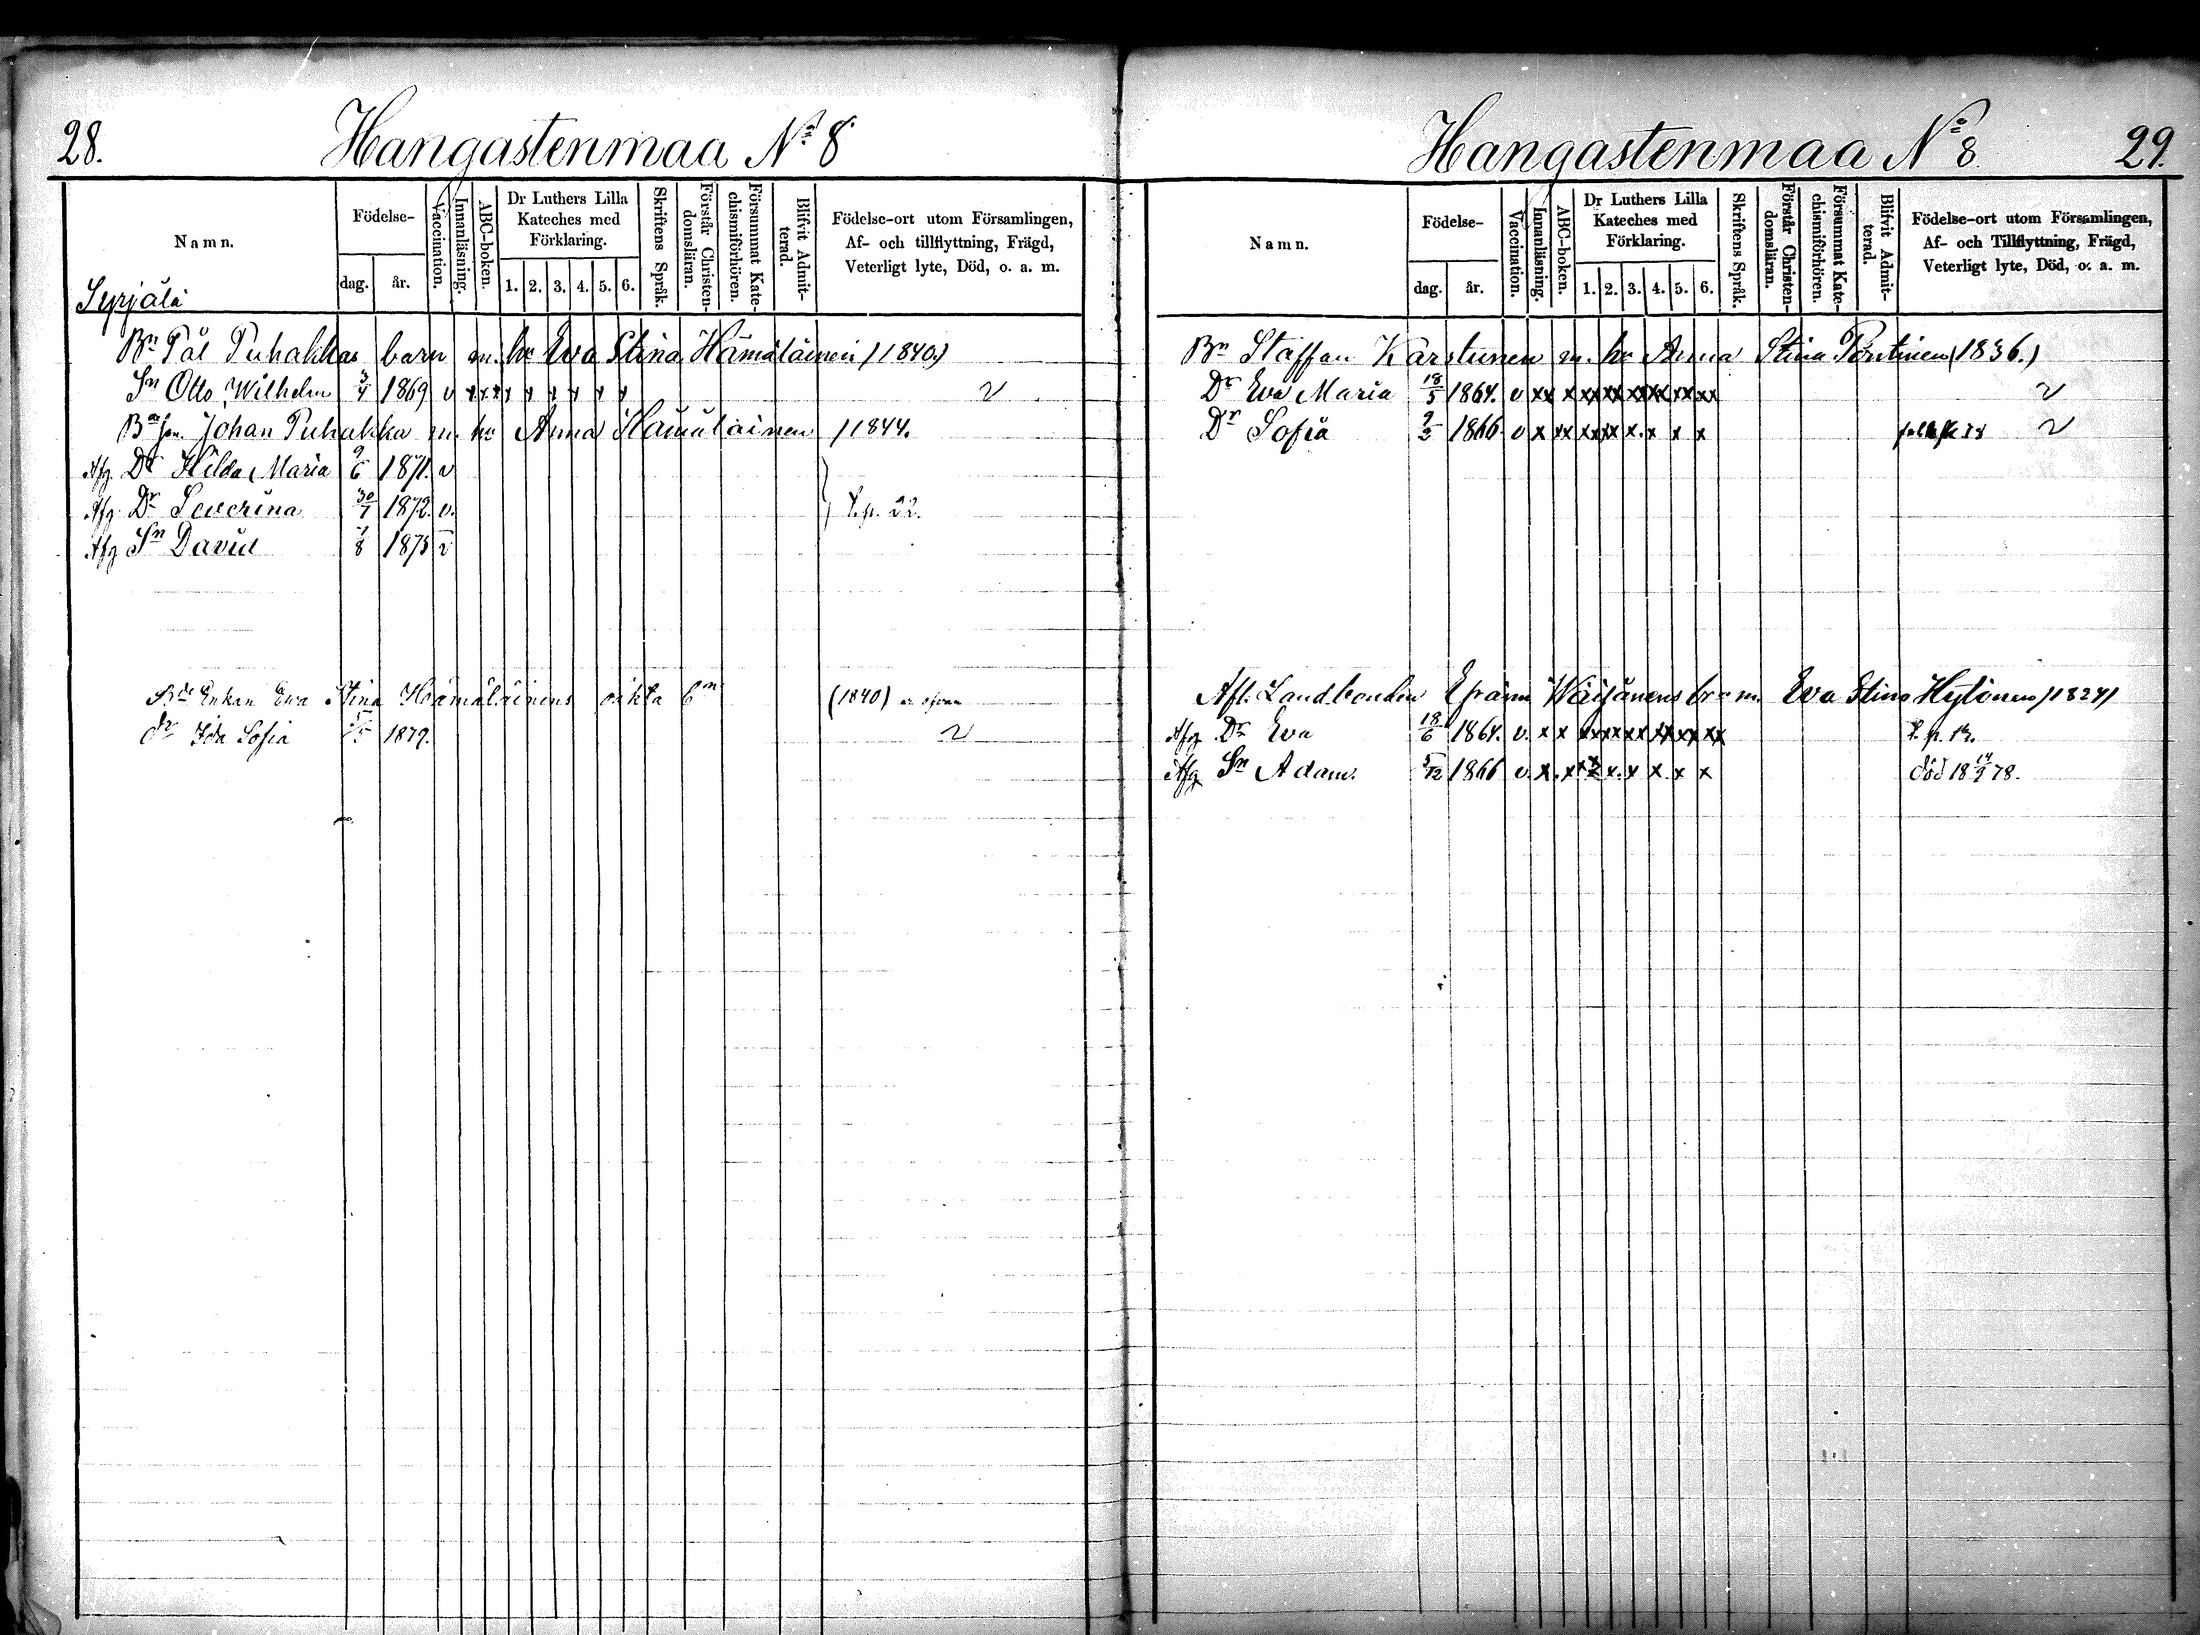 28.
Hangastenmaa No 8
Namn.
Födelse-
dag.
år.
Vaccination.
Innanläsning.
ABC-boken.
Dr Luthers Lilla
Kateches med
Förklaring.
1. 2. 3. 4. 5. 6.
Skriftens Språk.
Förstår Christen-
domsläran.
Försummat Kate-
chismiförhören.
Blifvit Admit-
terad.
Födelse-ort utom Församlingen,
Af- och tillflyttning, Frägd,
Veterligt lyte, Död, o. a. m.
Syrjälä
Bn Pål Puhakkas barn m. hu Eva Stina Hämäläinen /1840.)
Sn Otto Wilhelm 3/4 1869 v x x x x x x x x x
Johan Puhakka m. hu Anna Hämäläinen /1844.
Afg. Dr Hilda Maria 9/6 1871. v
Afg. Dr Severina 30/7 1872. v. } L. p. 22.
Afg Sn David 7/8 1875 v
Enkan Eva Stina Hämäläinens oäkta bn (1840)
dr Ida Sofia 1879.
Hangastenmaa No 8.
29.
Namn.
Födelse-
dag.
år.
Vaccination.
Innanläsning.
ABC-boken.
Dr Luthers Lilla
Kateches med
Förklaring.
1. 2. 3. 4. 5. 6.
Skriftens Språk.
Förstår Christen-
domsläran.
Försummat Kate-
chismiförhören.
Blifvit Admit-
terad.
Födelse-ort utom Församlingen,
Af- och Tillflyttning, Frägd,
Veterligt lyte, Död, o. a. m.
Bn Staffan Karstunen m. hu Anna Stina Pöntinen (1836.)
Dr Eva Maria 18/5 1864. v xx x xx xx xx xx xx xx
Dr Sofia 1866 v x xx xx xx x. x x x
Afl. Landbonden Epraim Wäisänens br m. Eva Stina Hytönen /1824/
Afg Dr Eva 18/6 1864. v. x x xx xx xx xx xx xx L. p. 12.
Afg Sn Adam. 5/12 1866 v. x. x x x. x x x x död 18 14/2 78.